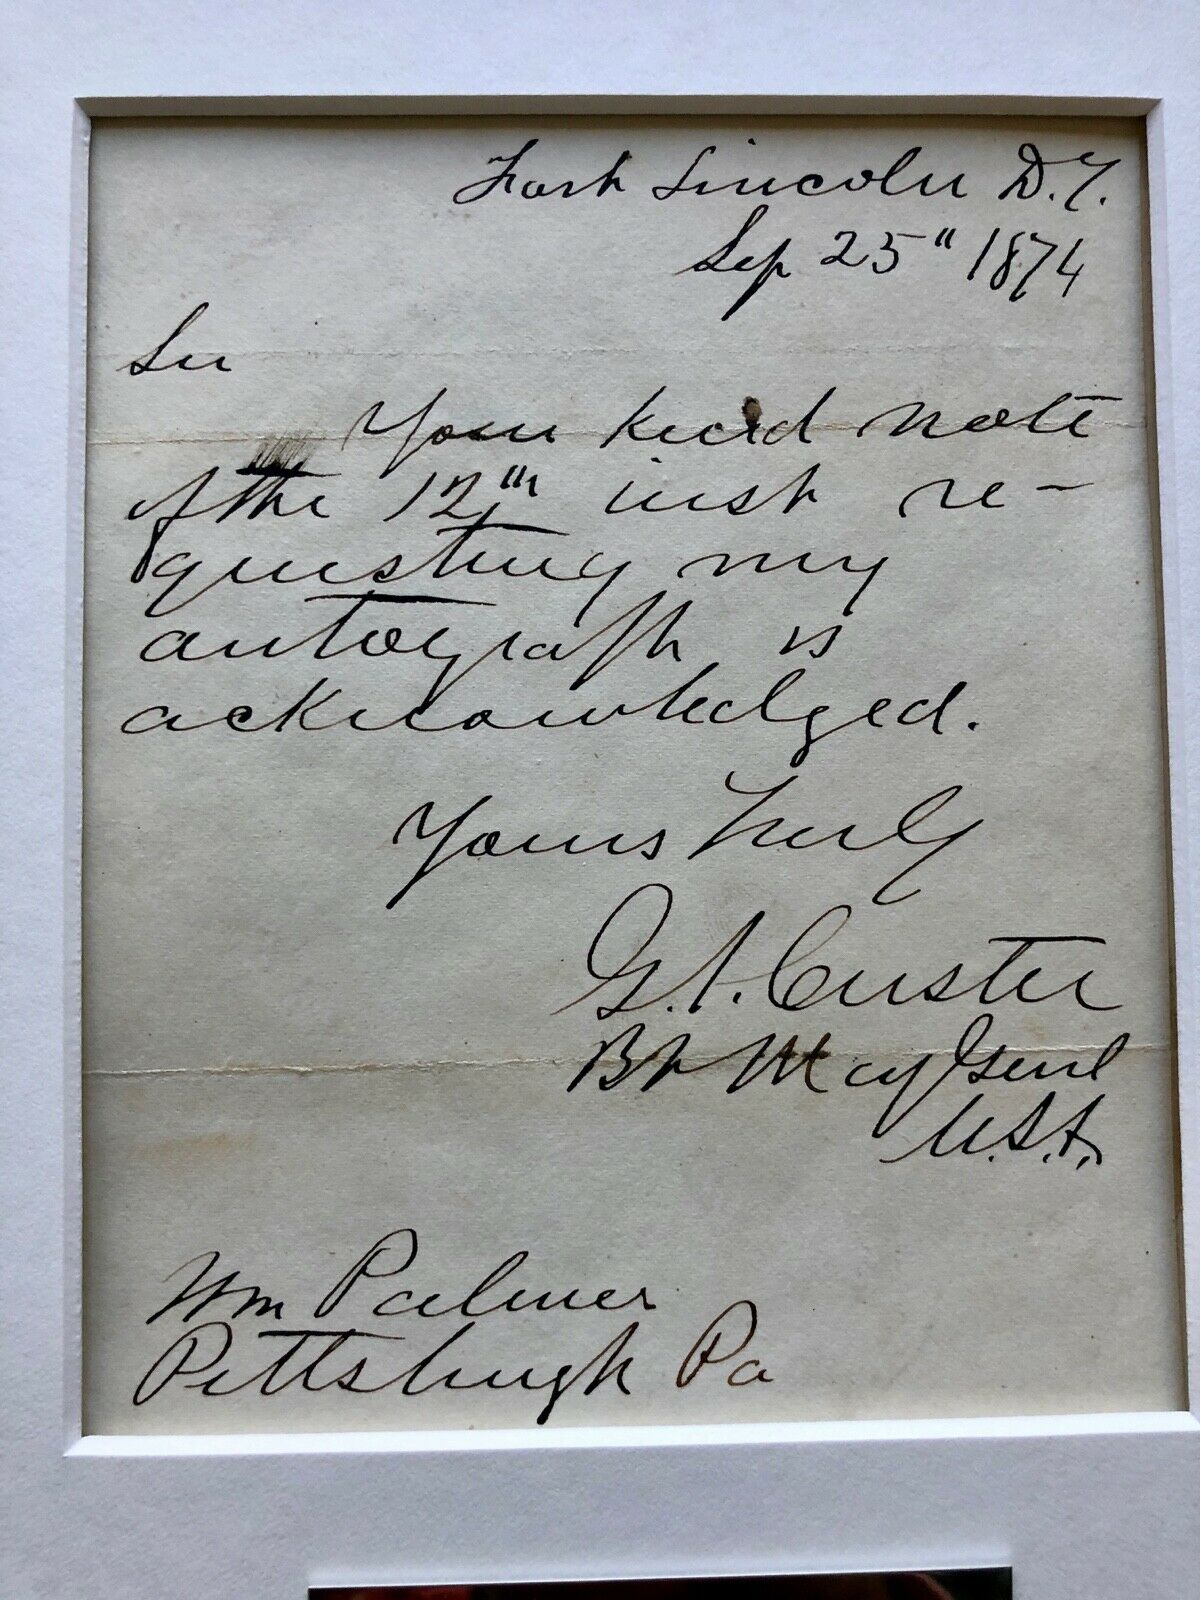 Fort Lincoln D.T.
Sep 25" 1874
Sir
Your kind note
of the 12th inst re-
questing my
autograph is
acknowledged.
Yours Truly
G.A. Custer
Bt Maj Genl
U.S.A.
Wm Palmer
Pittsburgh Pa